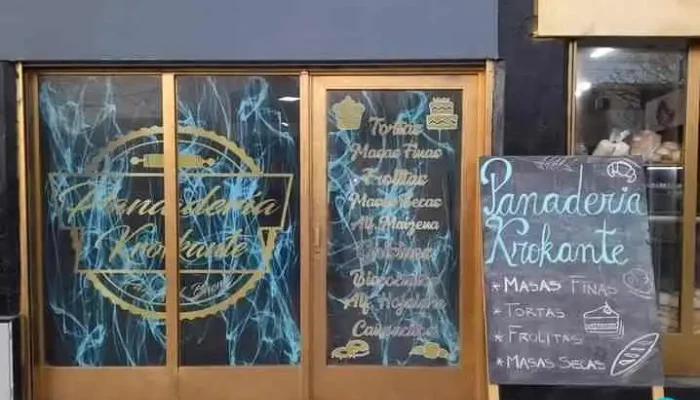 Panadería
Krokante
Tortas
Masas Finas
Frolitas
Masas Secas
Alf. Maizena
Alf. Hojaldre
Panaderia
Krokante
* Masas Finas
* Tortas
* Frolitas
* Masas Secas